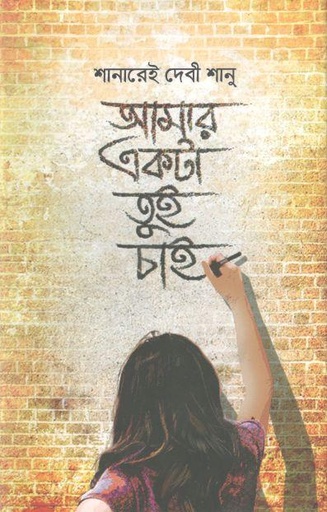 শানারেই দেবী শানু
আমার
একটা
তুই
চাই